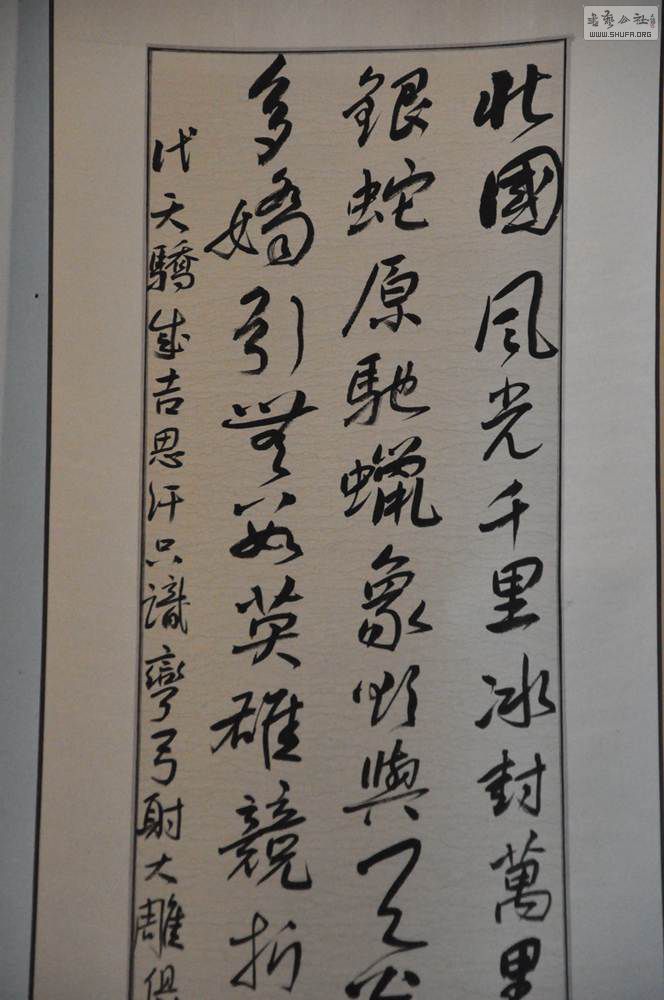 北國風光千里冰封萬里
銀蛇原馳蠟象欲與天公
多嬌引無數英雄競折
代天驕成吉思汗只識彎弓射大雕俱
书藝公社
WWW.SHUFA.ORG